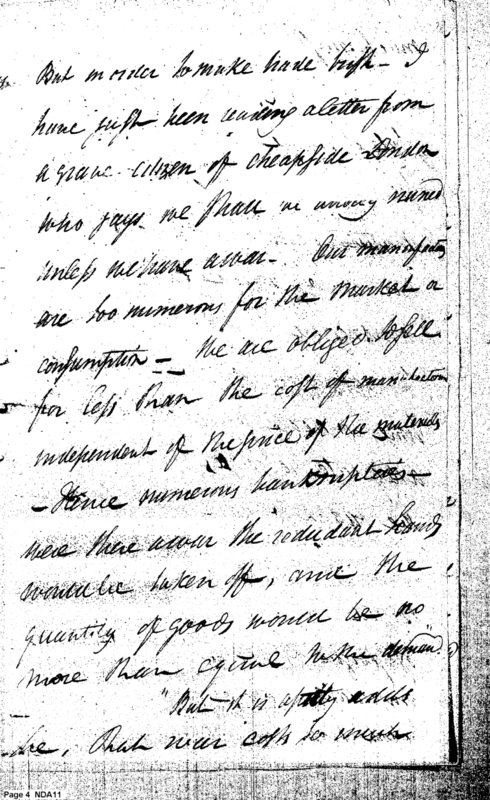 But in order to make trade brisk - I
have just been reading a letter from
a grave citizen of Cheapside London
who says we shall be ruined
unless we have a war - Our manufactures
are too numerous for the market or
consumption - We are obliged to sell
for less than the cost of manufacture
independent of the price of the materials
- Hence numerous bankruptcies -
were there a war the redundant hands
would be taken off, and the
quantity of goods would be no
more than equal to the demand.
"But it is a pity adds
he, that war costs so much
Page 4 NDA11